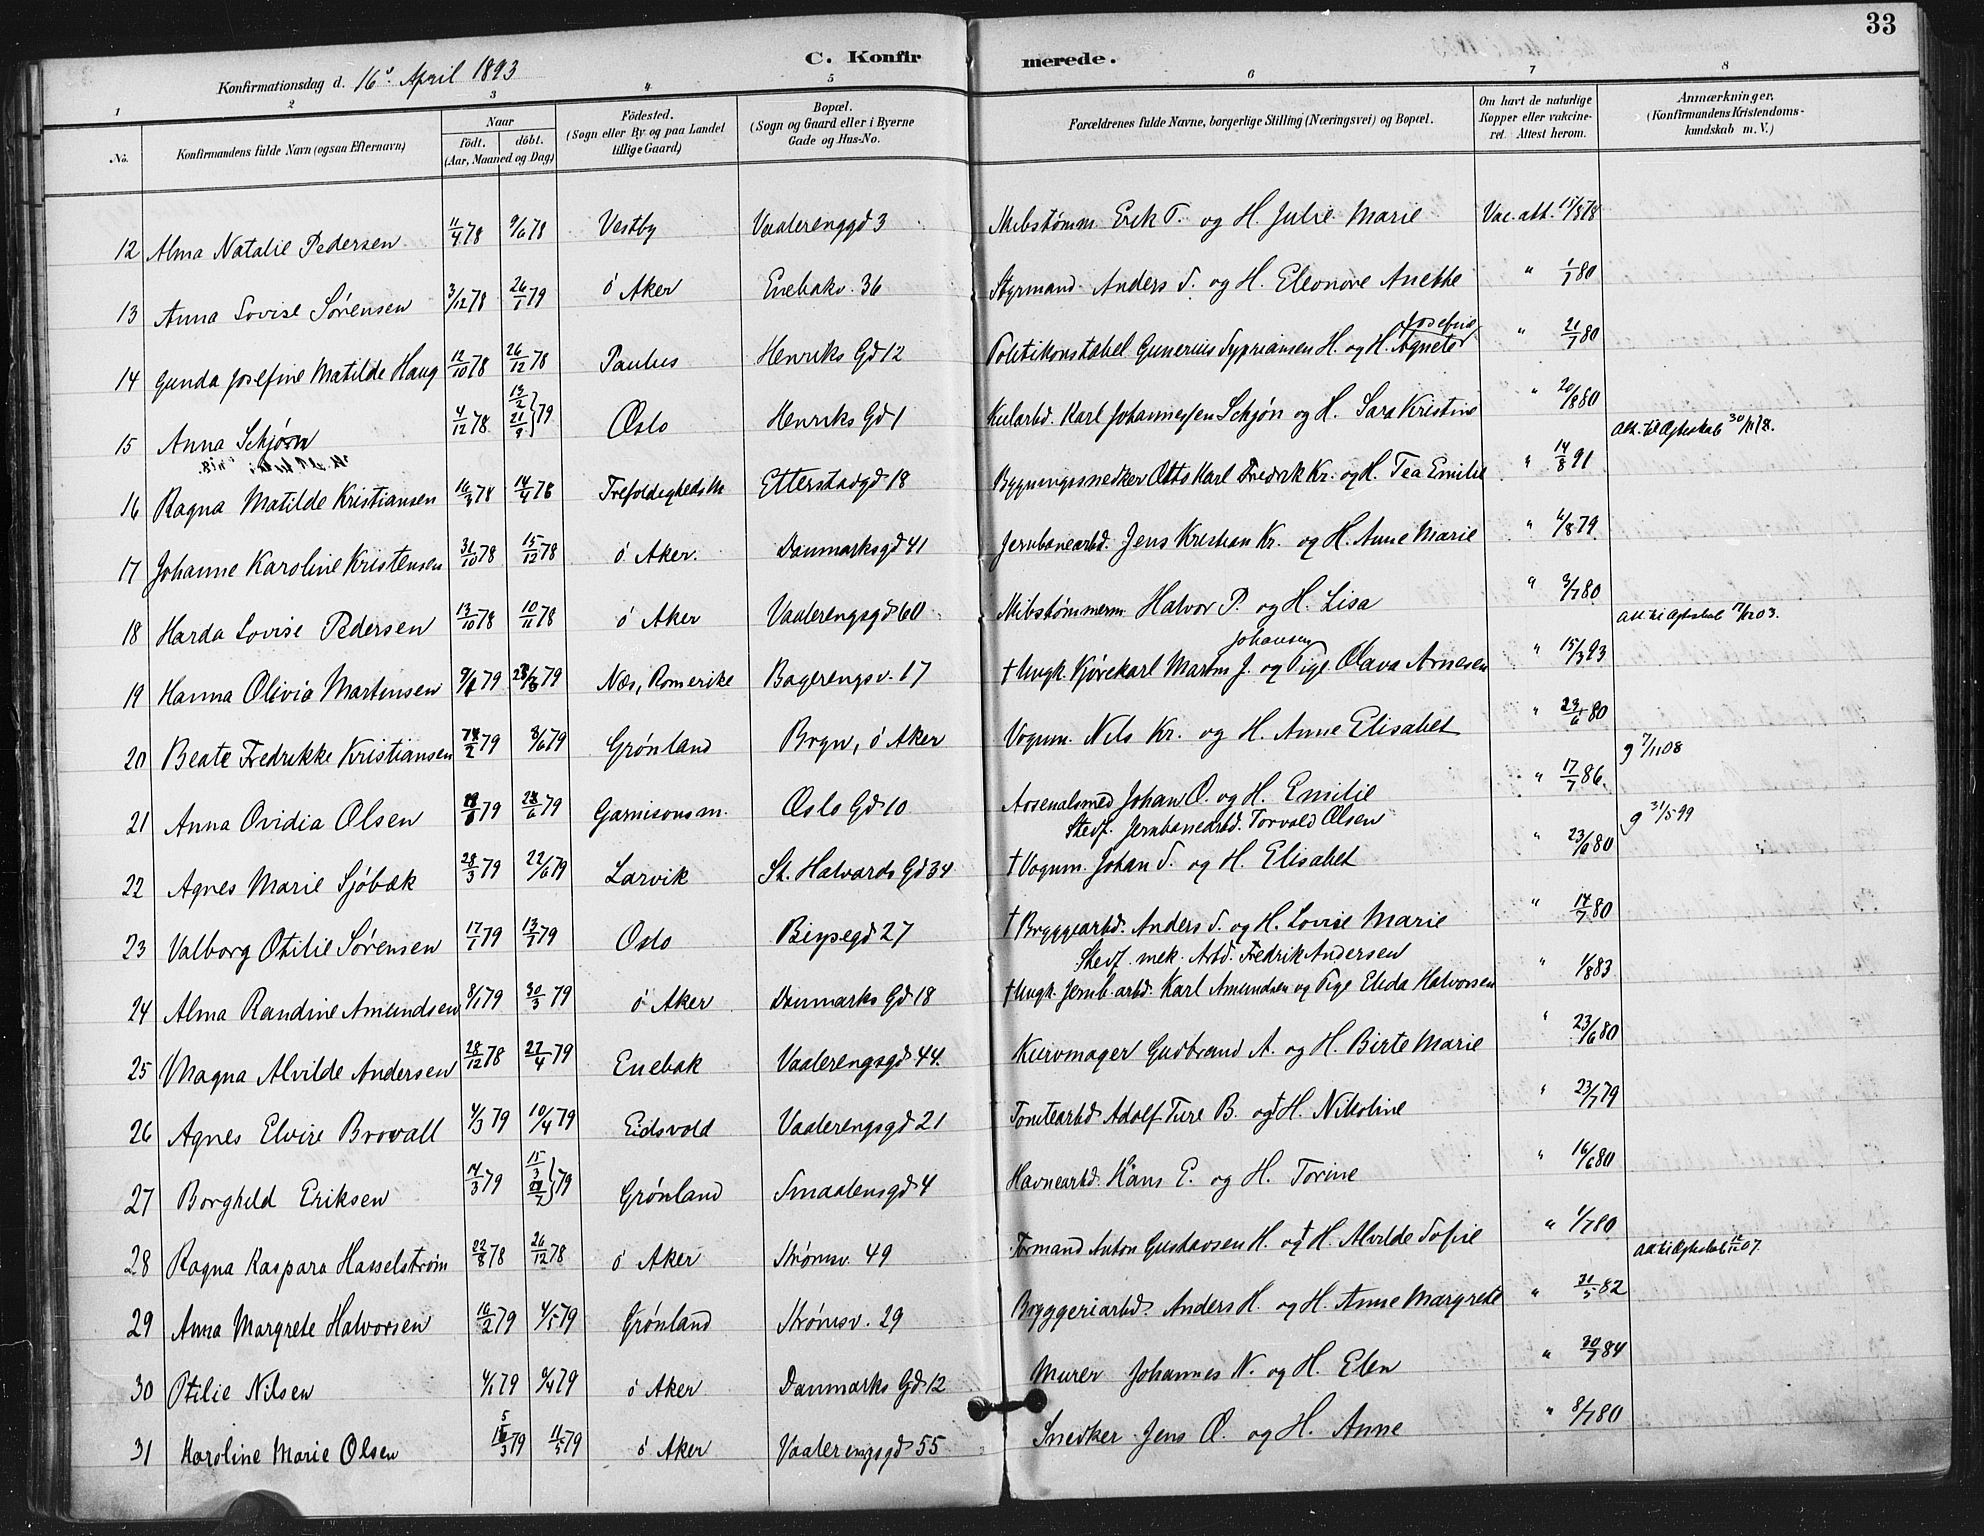 33
C. Konfirmerede.
Konfirmationsdag d. 16de April 1893
1 2 3 4 5 6 7 8
No. Konfirmandens fulde Navn (ogsaa Efternavn) Naar født. døbt. (Aar, Maaned og Dag) Fødested. (Sogn eller By og paa Landet tillige Gaard) Bopæl. (Sogn og Gaard eller i Byerne Gade og Hus-No. Forældrenes fulde Navne, borgerlige Stilling (Næringsvei) og Bopæl. Om havt de naturlige Kopper eller vaccineret. Attest herom. Anmærkninger. (Konfirmandens Kristendomskundskab m. V.)
12 Alma Natalie Pedersen 11/4 78 9/6 78 Vestby Vaalerenggd 3 Mibstømm. Erik P. og H. Julie Marie Vac. att. 17/8 78
13 Anna Lovise Sørensen 3/12 78 26/1 79 ø Aker Enebakv. 36 Styrmand Anders S. og H. Eleonore Anette " 1/7 80
14 Gunda Josefine Matilde Haug 12/10 78 26/12 78 Paulus Henriks Gd 12 Politikonstabel Gunerius Sypriansen H. og H. Josefine Agnete " 21/7 80
15 Anna Schjøn 4/12 78 13/2 21/9 } 79 Oslo Henriks Gd 1 Kularbd. Karl Johannessen Schjøn og H. Sara Kristine " 20/8 80 att. til Ægteskab 30/11 18.
16 Ragna Matilde Kristiansen 16/3 78 14/4 78 Trefoldighedsm Etterstadgd 18 Bygningssnedker Otto Karl Fredrik Kr. og H. Tea Emilie " 14/8 91
17 Johanne Karoline Kristensen 31/10 78 15/12 78 ø Aker. Danmarksgd 41 Jernbanearbd. Jens Kristian Kr. og H. Anne Marie " 6/8 79
18 Harda Lovise Pedersen 13/10 78 10/11 78 ø Aker Vaalerengsgd 60 Mibstømmerm. Halvor P. og H. Lisa " 9/7 80 att til Ægteskab 17/12 03.
19 Hanna Olivia Martinsen 9/1 79 23/3 79 Næs, Romerike Bagerengsv. 17 † Ungk. Kjørekarl Martin J. Johansen og Pige Olava Arnesen " 15/3 93
20 Beate Fredrikke Kristiansen 79 8/6 79 Grønland Bryn, ø Aker Vognm. Nils Kr. og H. Anne Elisabet " 23/6 80
21 Anna Ovidia Olsen 79 79 Garnisonsm. Oslo Gd 10 Arsenalsmed Johan O. og H. Emilie " 17/7 86. g 7/11 08
Stedf. Jernbanearbd. Torvald Olsen
22 Agnes Marie Sjøbæk 28/3 79 22/6 79 Larvik St. Halvards Gd 34 † Vognm. Johan S. og H. Elisabet " 23/6 80 g 31/5 99
23 Valborg Otilie Sørensen 17/1 79 13/7 79 Oslo Bispegd 27 † Bryggearbd. Anders S. og H. Lovise Marie " 14/7 80
Stedf. mek. Arbd. Fredrik Andersen
24 Alma Randine Amundsen 8/1 79 30/3 79 ø Aker Danmarks Gd 18 † Ungk. Jernb. arbd. Karl Amundsen og Pige Elida Halvorsen " 1/8 83
25 Magna Alvilde Andersen 28/12 78 27/4 79 Enebak Vaalerengsgd 44. Kurvmager Gudbrand A. og H. Birte Marie " 23/6 80
26 Agnes Elvire Brovall 4/3 79 10/4 79 Eidsvold Vaalerengsgd 21 Tomtearbd Adolf Ture B. og H. Nikoline " 23/7 79
27 Borghild Eriksen 14/3 79 79 Grønland Smaalensgd 4 Havnearbd. Hans E. og H. Torine " 16/6 80
28 Ragna Kaspara Hasselstrøm 22/8 78 26/12 78 ø Aker Strømsv. 49 Formand Anton Gustavsen H. og H. Alvilde Sofie " 1/7 80 att til Ægteskab 12/12 07.
29 Anna Margrete Halvorsen 16/2 79 4/5 79 Grønland Strømsv. 29 Bryggeriarbd. Anders H. og H. Anne Margrete " 31/5 82
30 Otilie Nilsen 4/1 79 9/4 79 ø Aker Danmarks Gd 12 Murer Johannes N. og H. Elen " 30/7 84
31 Karoline Marie Olsen 79 11/5 79 ø Aker Vaalerengsgd 55 Snedker Jens O. og H. Anne " 8/7 80